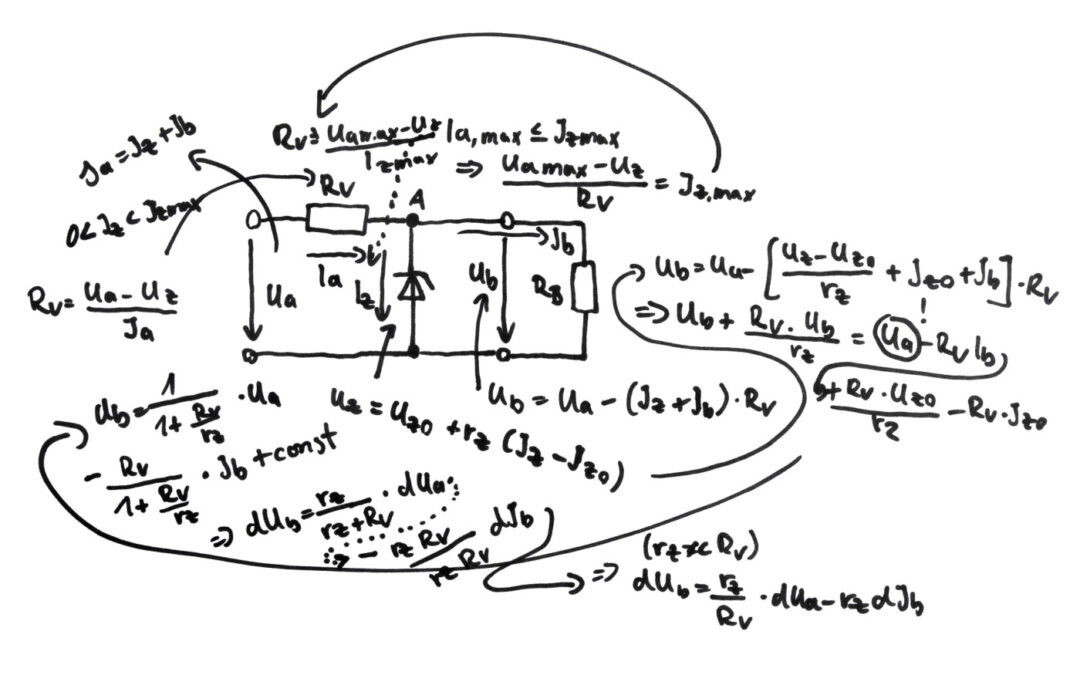 Rv ≥ (Ua max - Uz) / Iz max
Ia, max ≤ Jz max
⇒ (Ua max - Uz) / Rv = Jz, max
Ja = Jz + Jb
0 < Jz < Jz max
Rv = (Ua - Uz) / Ja
Rv
A
Ia
Iz
Jb
Ua
Ub
RB
Ub = Ua - [(Uz - Uz0) / rz + Jz0 + Jb] · Rv
⇒ Ub + (Rv · Ub) / rz = Ua - Rv Ib
!
+ (Rv · Uz0) / rz - Rv · Jz0
Ub = Ua - (Jz + Jb) · Rv
Uz = Uz0 + rz (Jz - Jz0)
Ub = 1 / (1 + Rv/rz) · Ua
- Rv / (1 + Rv/rz) · Jb + const
⇒ dUb = rz / (rz + Rv) · dUa
- (rz Rv) / (rz Rv) dJb
(rz << Rv)
⇒ dUb = rz / Rv · dUa - rz dJb